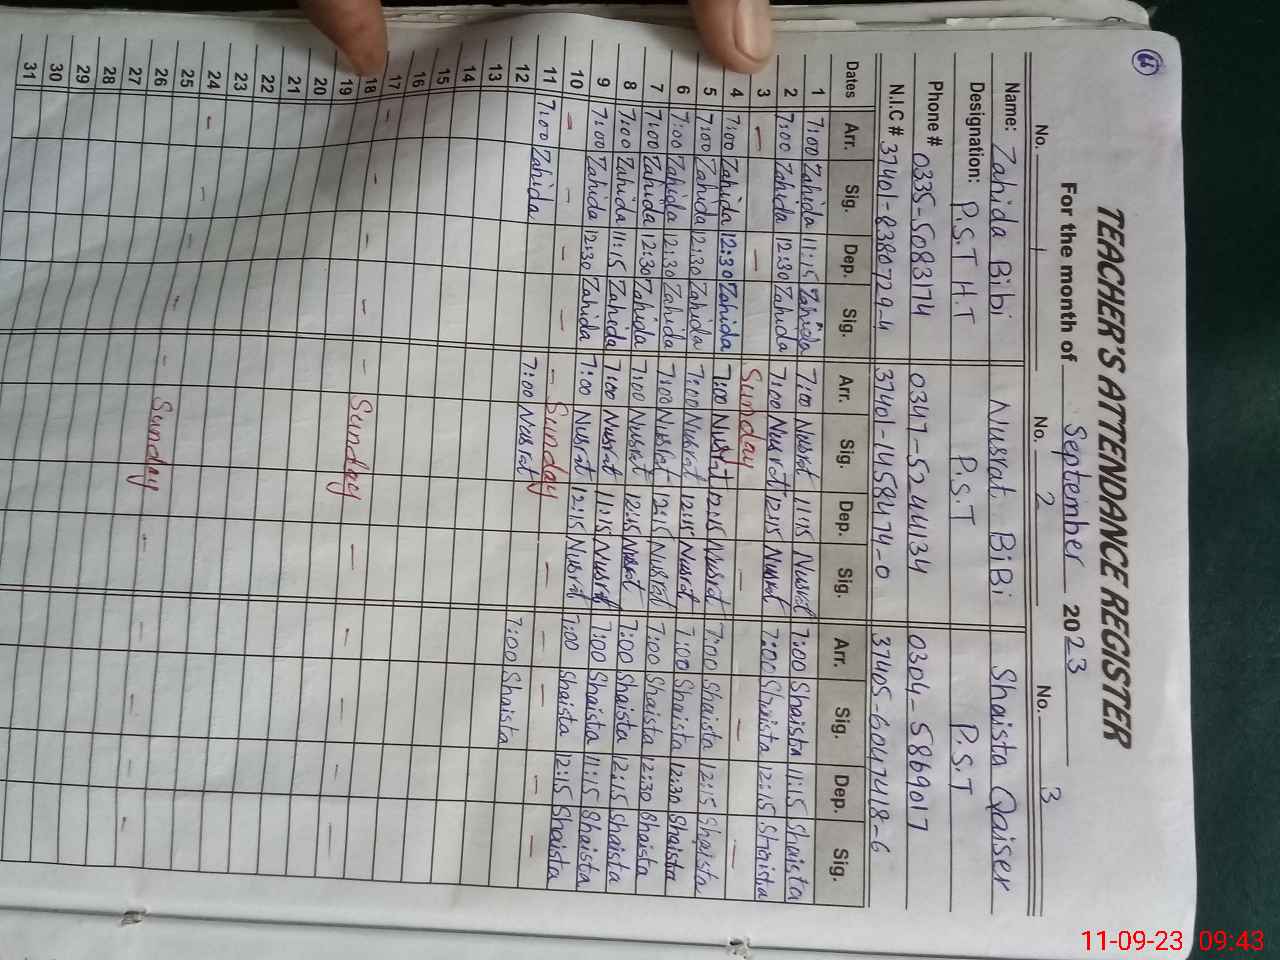 TEACHER'S ATTENDANCE REGISTER
For the month of September 2023
No. 1 No. 2 No. 3
Name: Zahida Bibi Nusrat BiBi Shaista Qaiser
Designation: P.S.T H.T P.S.T P.S.T
Phone # 0335-5083174 0347-5244134 0304-5869017
N.I.C # 37401-8380729-4 37401-1458474-0 37405-6047418-6
Dates Arr. Sig. Dep. Sig. Arr. Sig. Dep. Sig. Arr. Sig. Dep. Sig.
1 7:00 Zahida 11:15 Zahida 7:00 Nusrat 11:15 Nusrat 7:00 Shaista 11:15 Shaista
2 7:00 Zahida 12:30 Zahida 7:00 Nusrat 12:15 Nusrat 7:00 Shaista 12:15 Shaista
3 — — Sunday — — —
4 7:00 Zahida 12:30 Zahida 7:00 Nusrat 12:15 Nusrat 7:00 Shaista 12:15 Shaista
5 7:00 Zahida 12:30 Zahida 7:00 Nusrat 12:15 Nusrat 7:00 Shaista 12:30 Shaista
6 7:00 Zahida 12:30 Zahida 7:00 Nusrat 12:15 Nusrat 7:00 Shaista 12:30 Shaista
7 7:00 Zahida 12:30 Zahida 7:00 Nusrat 12:15 Nusrat 7:00 Shaista 12:15 Shaista
8 7:00 Zahida 11:15 Zahida 7:00 Nusrat 11:15 Nusrat 7:00 Shaista 11:15 Shaista
9 7:00 Zahida 12:30 Zahida 7:00 Nusrat 12:15 Nusrat 7:00 Shaista 12:15 Shaista
10 — — — — — Sunday — — — — —
11 7:00 Zahida 7:00 Nusrat 7:00 Shaista
12
13
14
15
16
17 — — — — — Sunday — — — — —
18
19
20
21
22
23
24 — — — — — Sunday — — — — —
25
26
27
28
29
30
31
11-09-23 09:43